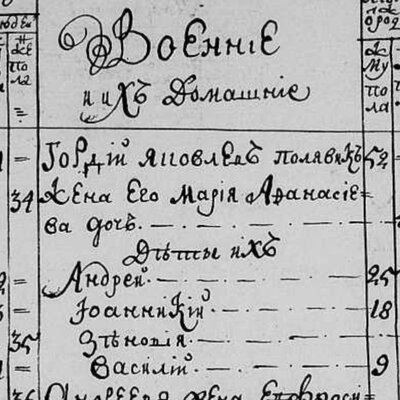 Военніе
и ихъ Домашніе
Гордій Яковлевъ Полявикъ 52
34 Жена Его Марія Афанасіе=
ва дочь.
Дѣти ихъ
Андрей. 25
Іоанникій. 18
35 Зѣновія.
Василій. 9
36 Андреева жена